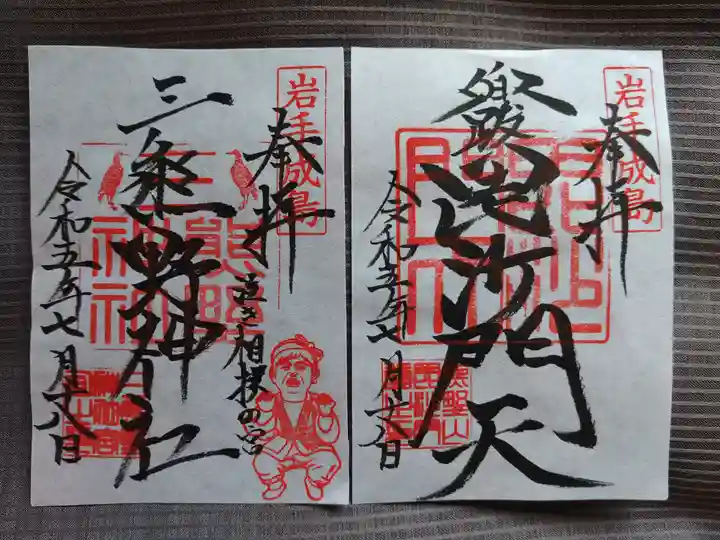 岩手成島
奉拝
泣き相撲の宮
三熊野神社
令和五年七月十八日
岩手成島
奉拝
毘沙門天
令和五年七月十八日